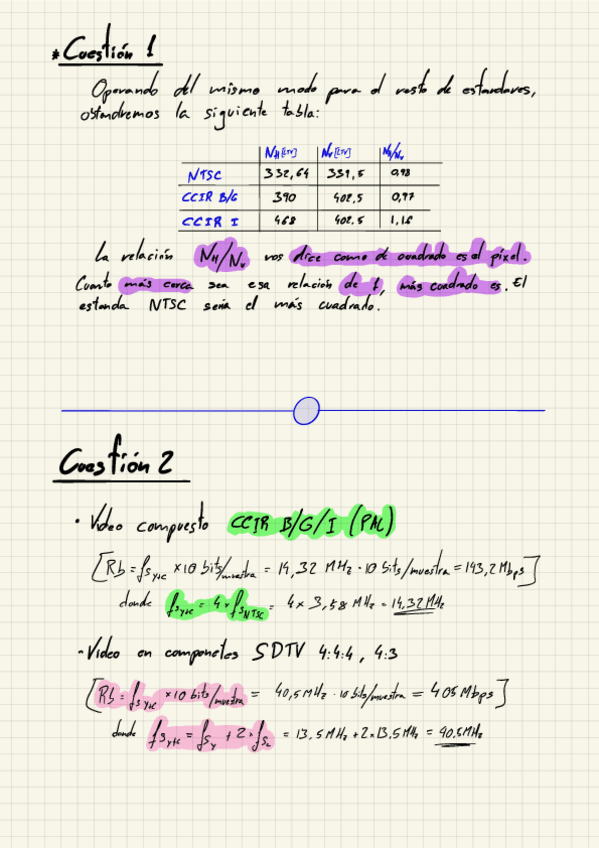 * Cuestión 1
Operando del mismo modo para el resto de estandares,
obtendremos la siguiente tabla:
NH [LTV] NV [LTV] NH/NV
NTSC 332,64 331,5 0,98
CCIR B/G 390 402,5 0,97
CCIR I 468 402,5 1,16
La relación NH/Nv nos dice como de cuadrado es el píxel.
Cuanto más cerca sea esa relación de 1, más cuadrado es. El
estanda NTSC sería el más cuadrado.
Cuestión 2
· Video compuesto CCIR B/G/I (PAL)
[Rb = fsy+c × 10 bits/muestra = 14,32 MHz · 10 bits/muestra = 143,2 Mbps]
donde fsy+c = 4 × fsNTSC = 4 × 3,58 MHz = 14,32 MHz
- Video en componetes SDTV 4:4:4, 4:3
[Rb = fsy+c × 10 bits/muestra = 40,5 MHz · 10 bits/muestra = 405 Mbps]
donde fsy+c = fsy + 2 · fsc = 13,5 MHz + 2 × 13,5 MHz = 40,5 MHz